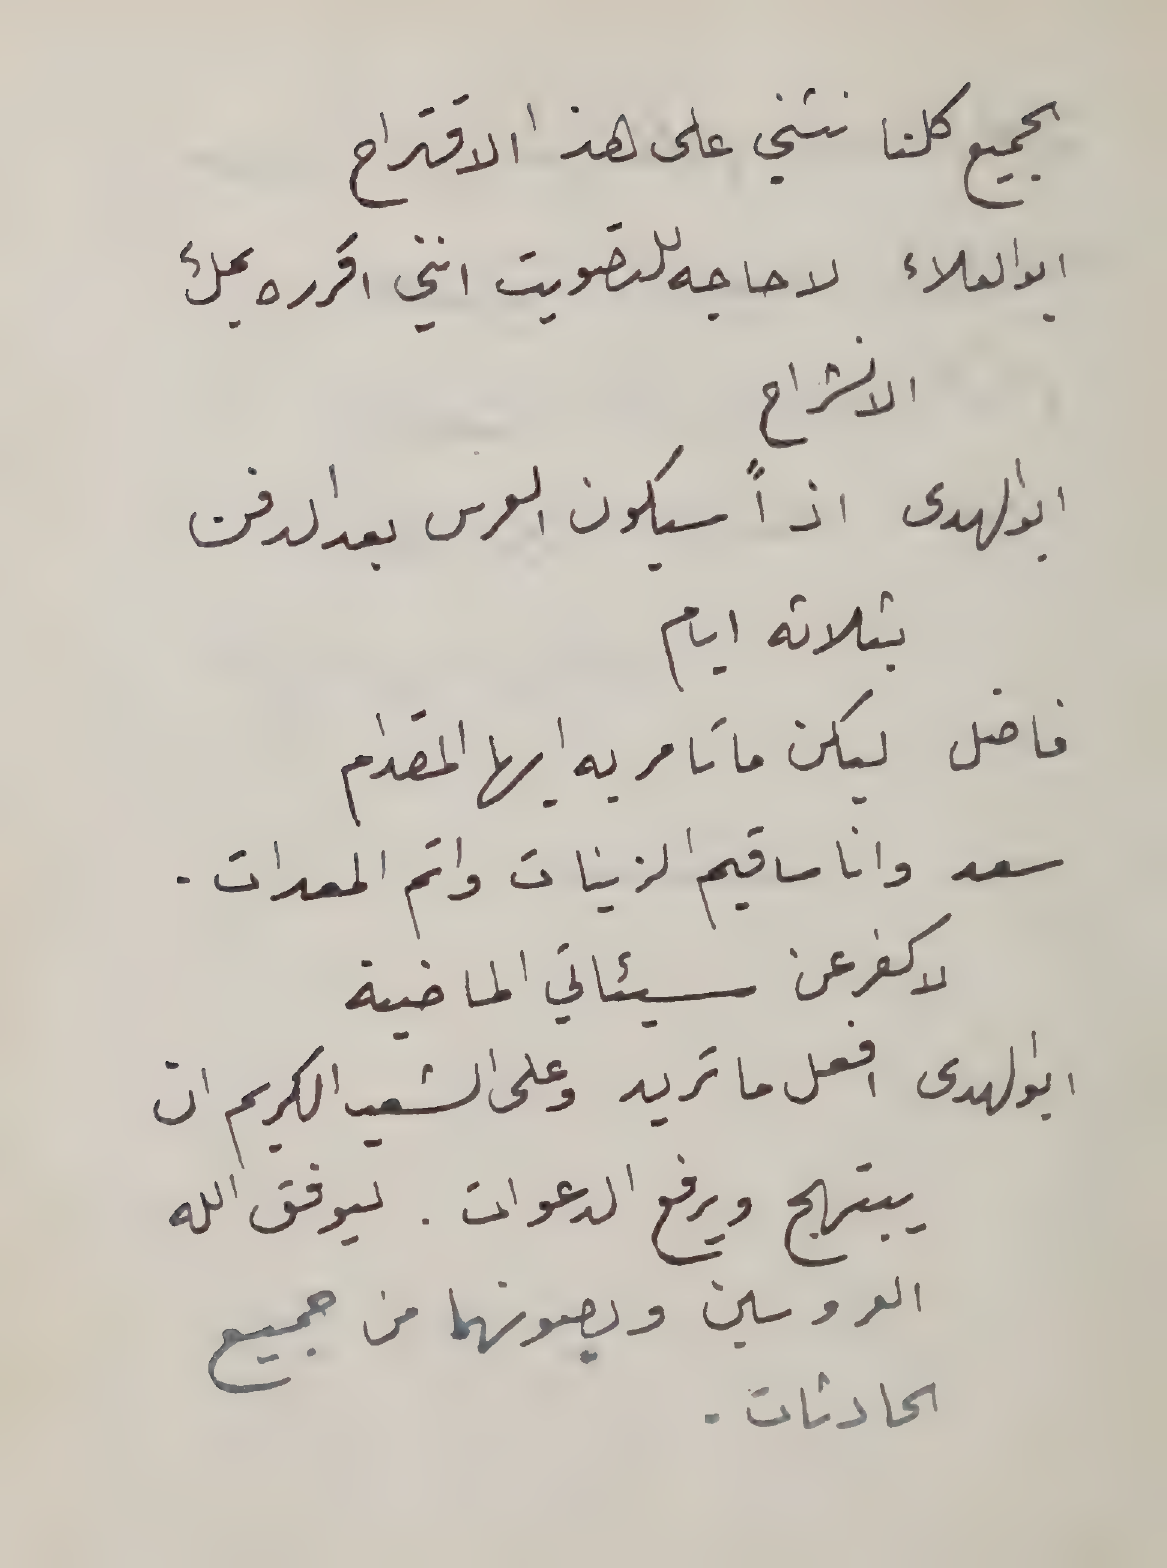 الجميع كلنا نثني على هذا الاقتراح
ابو العلاء لا حاجه للتصويت انني اقرره بملئ
الانشراح
ابو الهدى اذاً سيكون العرس بعد الدفن
بثلاثه ايام
فاضل ليكن ما تامر به ايها المقدام
سعد وانا ساقيم الزينات واتم المعدات .
لاكفر عن سيئاتي الماضية
ابو الهدى افعل ما تريد وعلى الشعب الكريم ان
يبتهج ويرفع الدعوات . ليوفق الله
العروسين ويصونهما من جميع
الحادثات .